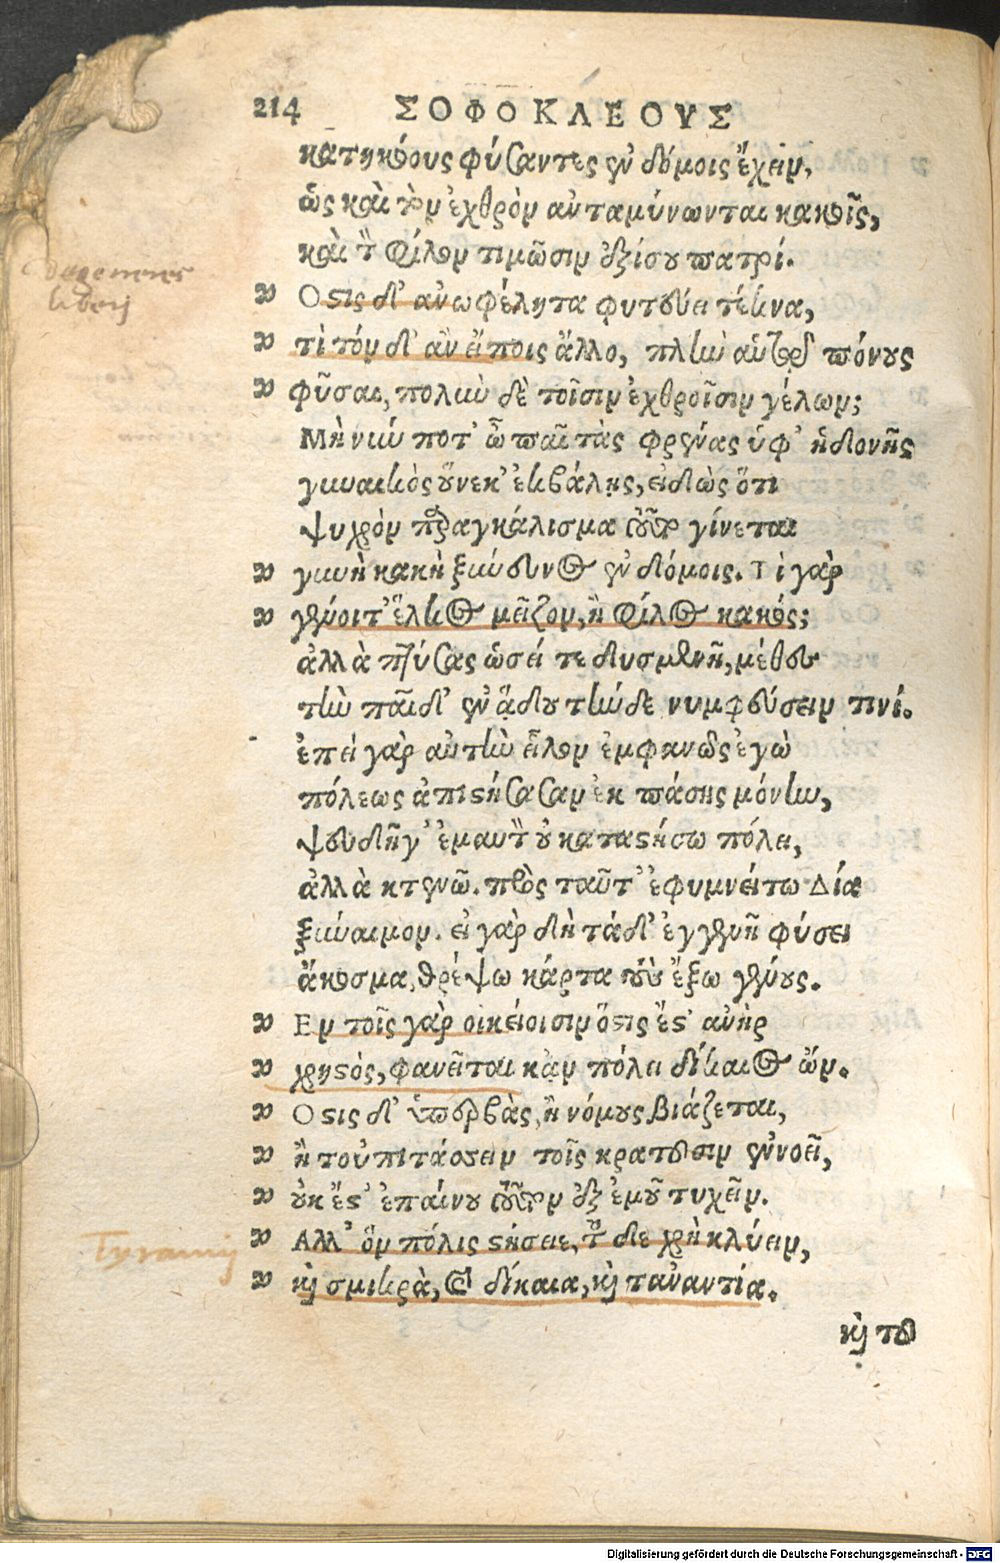 214 ΣΟΦΟΚΛΕΟΥΣ
κατηκόους φύσαντες ἐν δόμοις ἔχειν,
ὡς καὶ τὸν ἐχθρὸν ἀνταμύνωνται κακοῖς,
καὶ τ̀ φίλον τιμῶσιν ἐξίσου πατρί.
Οϛις δ' ἀνωφέλητα φυτεύει τέκνα,
τὶ τόνδ' ἂν εἴποις ἄλλο, πλὴν αὑτῷ πόνους
φῦσαι, πολιὺ δὲ τοῖσιν ἐχθροῖσιν γέλων;
Μὴ νιύ ποτ' ὦ παῖ τὰς φρένας ὑφ' ἡδονῆς
γυναικὸς οὕνεκ' ἐκβάλῃς, εἰδὼς ὅτι
ψυχρὸν παραγκάλισμα τοῦτο γίνεται
γυνὴ κακὴ ξύνευνος ἐν δόμοις. Τὶ γὰρ
γένοιτ' ἕλκος μεῖζον, ἢ φίλος κακός;
ἀλλὰ πτύσας ὡσεί τε δυσμενῆ, μέθες
τὴν παῖδ' ἐν ᾅδου τήνδε νυμφεύσειν τινί.
ἐπεὶ γὰρ αὐτὴν εἷλον ἐμφανῶς ἐγὼ
πόλεως ἀπιϛήσασαν ἐκ πάσης μόνην,
ψευδῆ γ' ἐμαυτ̀ οὐ καταϛήσω πόλει,
ἀλλὰ κτενῶ. πρὸς ταῦτ' ἐφυμνείτω Δία
ξύναιμον. εἰ γὰρ δὴ τάδ' ἐγγενῆ φύσει
ἄκοσμα, θρέψω κάρτα τοὺς ἔξω γένους.
Εν τοῖς γὰρ οἰκείοισιν ὅϛις ἔϛ' ἀνὴρ
χρηϛὸς, φανεῖται κἀν πόλει δίκαιος ὤν.
Οϛις δ' ὑπερβὰς, ἢ νόμους βιάζεται,
ἢ τοὐπιτάσσειν τοῖς κρατοῦσιν ἐννοεῖ,
οὐκ ἔϛ' ἐπαίνου τοῦτον ἐξ ἐμοῦ τυχεῖν.
Αλλ' ὃν πόλις ϛήσειε, τοῦδε χρὴ κλύειν,
καὶ σμικρὰ, καὶ δίκαια, καὶ τἀναντία.
καὶ τοῦ
liberj
Tyrannj
Digitalisierung gefördert durch die Deutsche Forschungsgemeinschaft - DFG